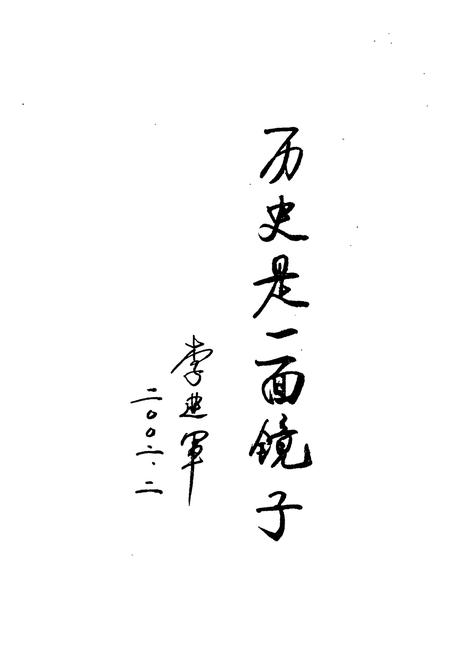 历史是一面镜子
李进軍
二〇〇六.二